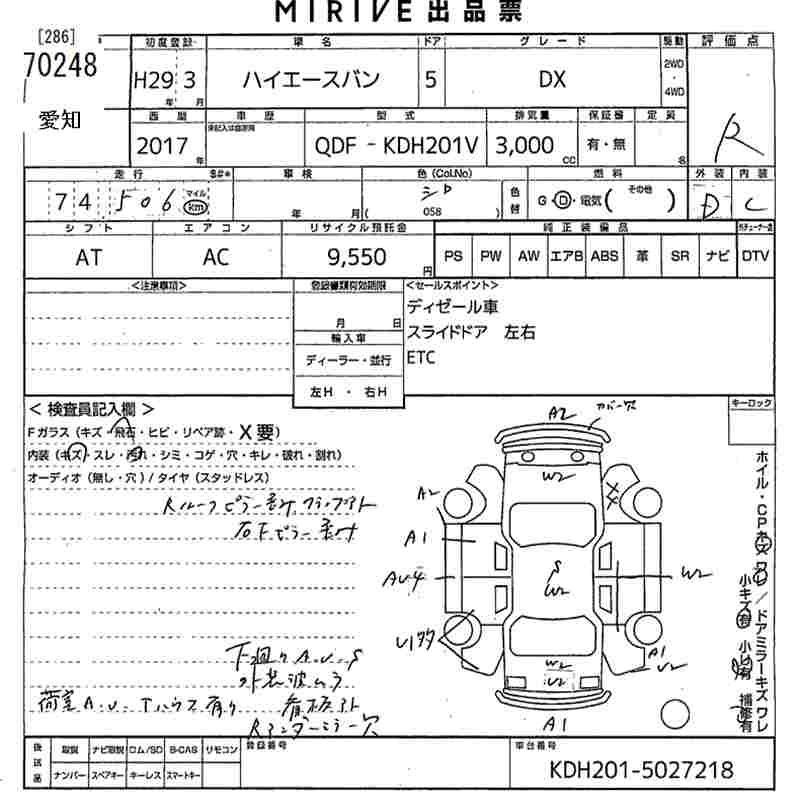 MIRIVE 出品票
[286]
70248
愛知
初度登録 車名 ドア グレード 駆動 評価点
H29 3 ハイエースバン 5 DX 2WD・4WD
年 月
R
西暦 車歴 型式 排気量 保証書 定員
未記入は自家用
2017年 QDF - KDH201V 3,000CC 有・無 名
走行 $#* 車検 色(Col.No) 燃料 外装 内装
74 506 マイル km 年 月 シロ ( 058 ) 色替 G・D・電気( その他 ) D C
シフト エアコン リサイクル預託金 純正装備品
AT AC 9,550円 PS PW AW エアB ABS 革 SR ナビ DTV
<注意事項> 登録書類有効期限 <セールスポイント>
月 日
輸入車
ディーラー・並行
左H ・ 右H
ディゼール車
スライドドア 左右
ETC
< 検査員記入欄 > キーロック
Fガラス (キズ・飛石・ヒビ・リペア跡・X要)
内装 (キズ・スレ・汚れ・シミ・コゲ・穴・キレ・破れ・割れ)
オーディオ (無し・穴) / タイヤ (スタッドレス)
右下ピラー
下廻り A.U.S
荷室 A.U. 有り
Rアンダーミラー穴
A2 カバー穴
W2
A2
A1
AU4 S W2 W2
U1
W2 A1
U2 U2
A1
ホイル・CPキズ ワレ / ドアミラーキズ ワレ
小キズ有 小凹有 補修有
後送品 取説 ナビ取説 ロム/SD B-CAS リモコン 登録番号 車台番号
ナンバー スペアキー キーレス スマートキー KDH201-5027218